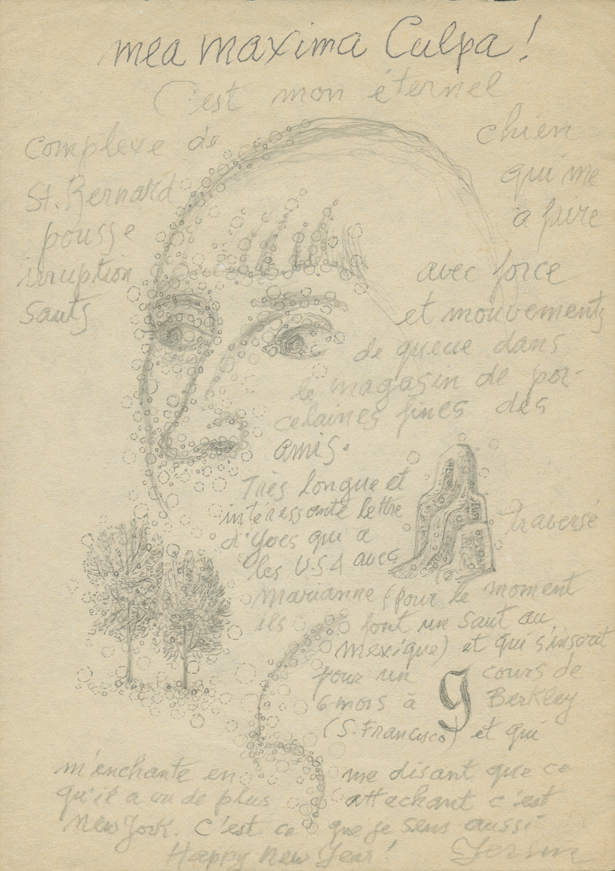 mea maxima Culpa!
C'est mon éternel
complexe de chien
St. Bernard qui me
pousse à faire
irruption avec force
sauts et mouvements
de queue dans
le magasin de por-
celaines fines des
amis.
Très longue et
intéressante lettre
d'Yves qui a traversé
les USA avec
Marianne (pour le moment
ils font un saut au
Mexique) et qui s'inscrit
pour un cours de
6 mois à Berkley
(S. Francisco) et qui
m'enchante en me disant que ce
qu'il a vu de plus attachant c'est
New York. C'est ce que je sens aussi
Happy New Year!